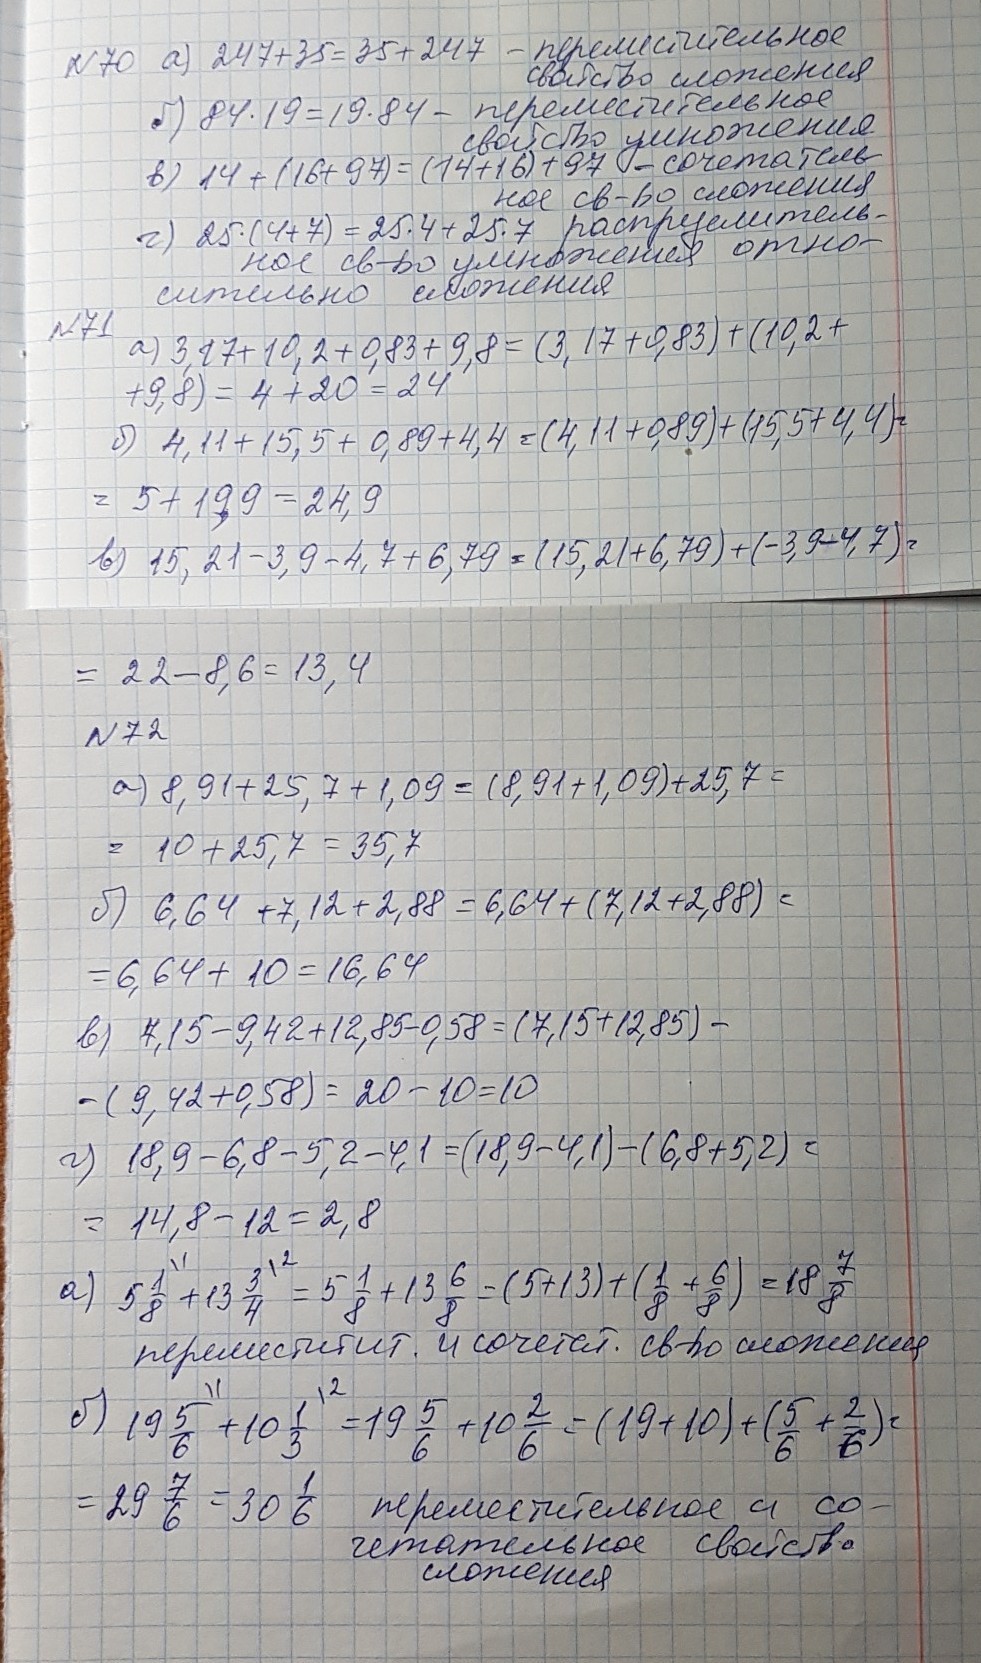 №70 а) 247+35=35+247 – переместительное
свойство сложения
б) 84·19=19·84 – переместительное
свойство умножения
в) 14+(16+97)=(14+16)+97 – сочетатель-
ное св-во сложения
г) 25·(4+7)=25·4+25·7 распределитель-
ное св-во умножения отно-
сительно сложения
№71
а) 3,17+10,2+0,83+9,8=(3,17+0,83)+(10,2+
+9,8)=4+20=24
б) 4,11+15,5+0,89+4,4=(4,11+0,89)+(15,5+4,4)=
=5+19,9=24,9
в) 15,21-3,9-4,7+6,79=(15,21+6,79)+(-3,9-4,7)=
=22-8,6=13,4
№72
а) 8,91+25,7+1,09=(8,91+1,09)+25,7=
=10+25,7=35,7
б) 6,64+7,12+2,88=6,64+(7,12+2,88)=
=6,64+10=16,64
в) 7,15-9,42+12,85-0,58=(7,15+12,85)-
-(9,42+0,58)=20-10=10
г) 18,9-6,8-5,2-4,1=(18,9-4,1)-(6,8+5,2)=
=14,8-12=2,8
а) 5 1/8 \1 + 13 3/4 \2 = 5 1/8 + 13 6/8 = (5+13)+(1/8+6/8)=18 7/8
переместит. и сочетат. св-во сложения
б) 19 5/6 \1 + 10 1/3 \2 = 19 5/6 + 10 2/6 = (19+10)+(5/6+2/6)=
=29 7/6 = 30 1/6 переместительное и со-
четательное свойство
сложения